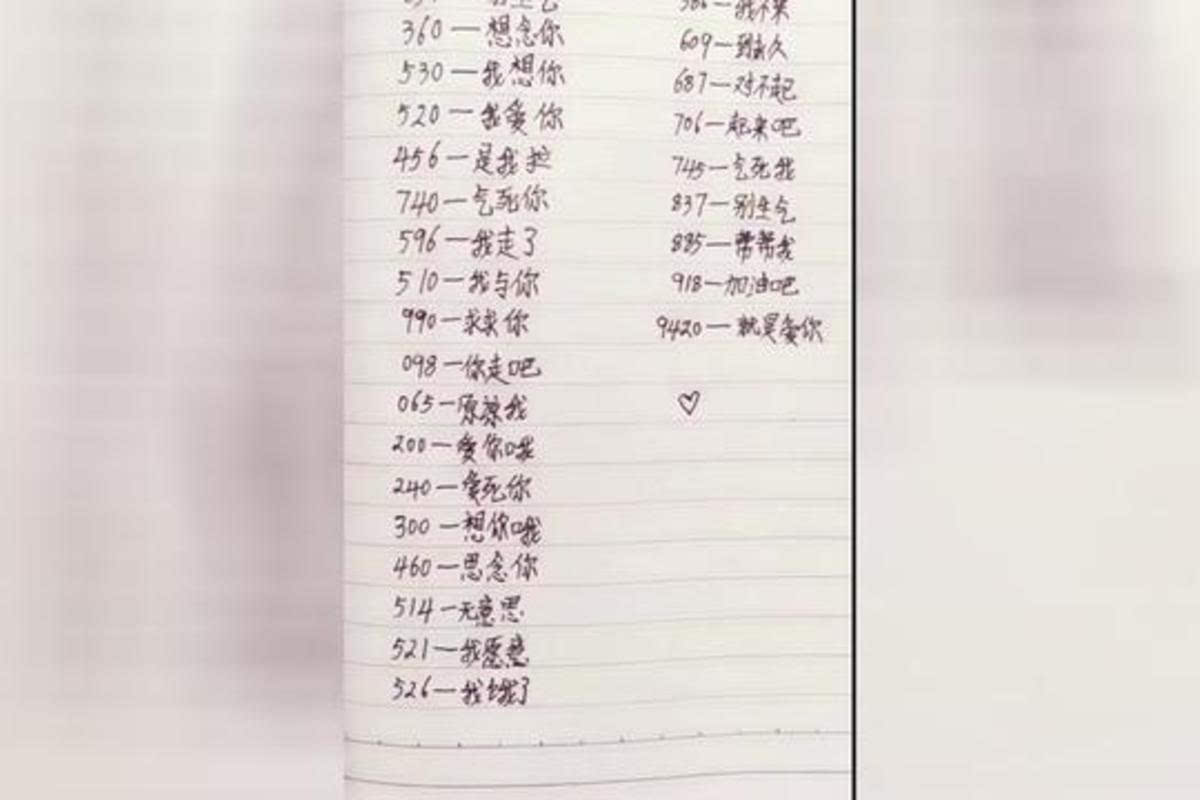 360一想念你
530一我想你
520一我爱你
456一是我拉
740一气死你
596一我走了
510一我与你
990一求求你
098一你走吧
065一原谅我
200一爱你哦
240一爱死你
300一想你哦
460一思念你
514一无意思
521一我愿意
526一我饿了
609一到永久
687一对不起
706一起来吧
745一气死我
837一别生气
885一帮帮我
918一加油吧
9420一就是爱你